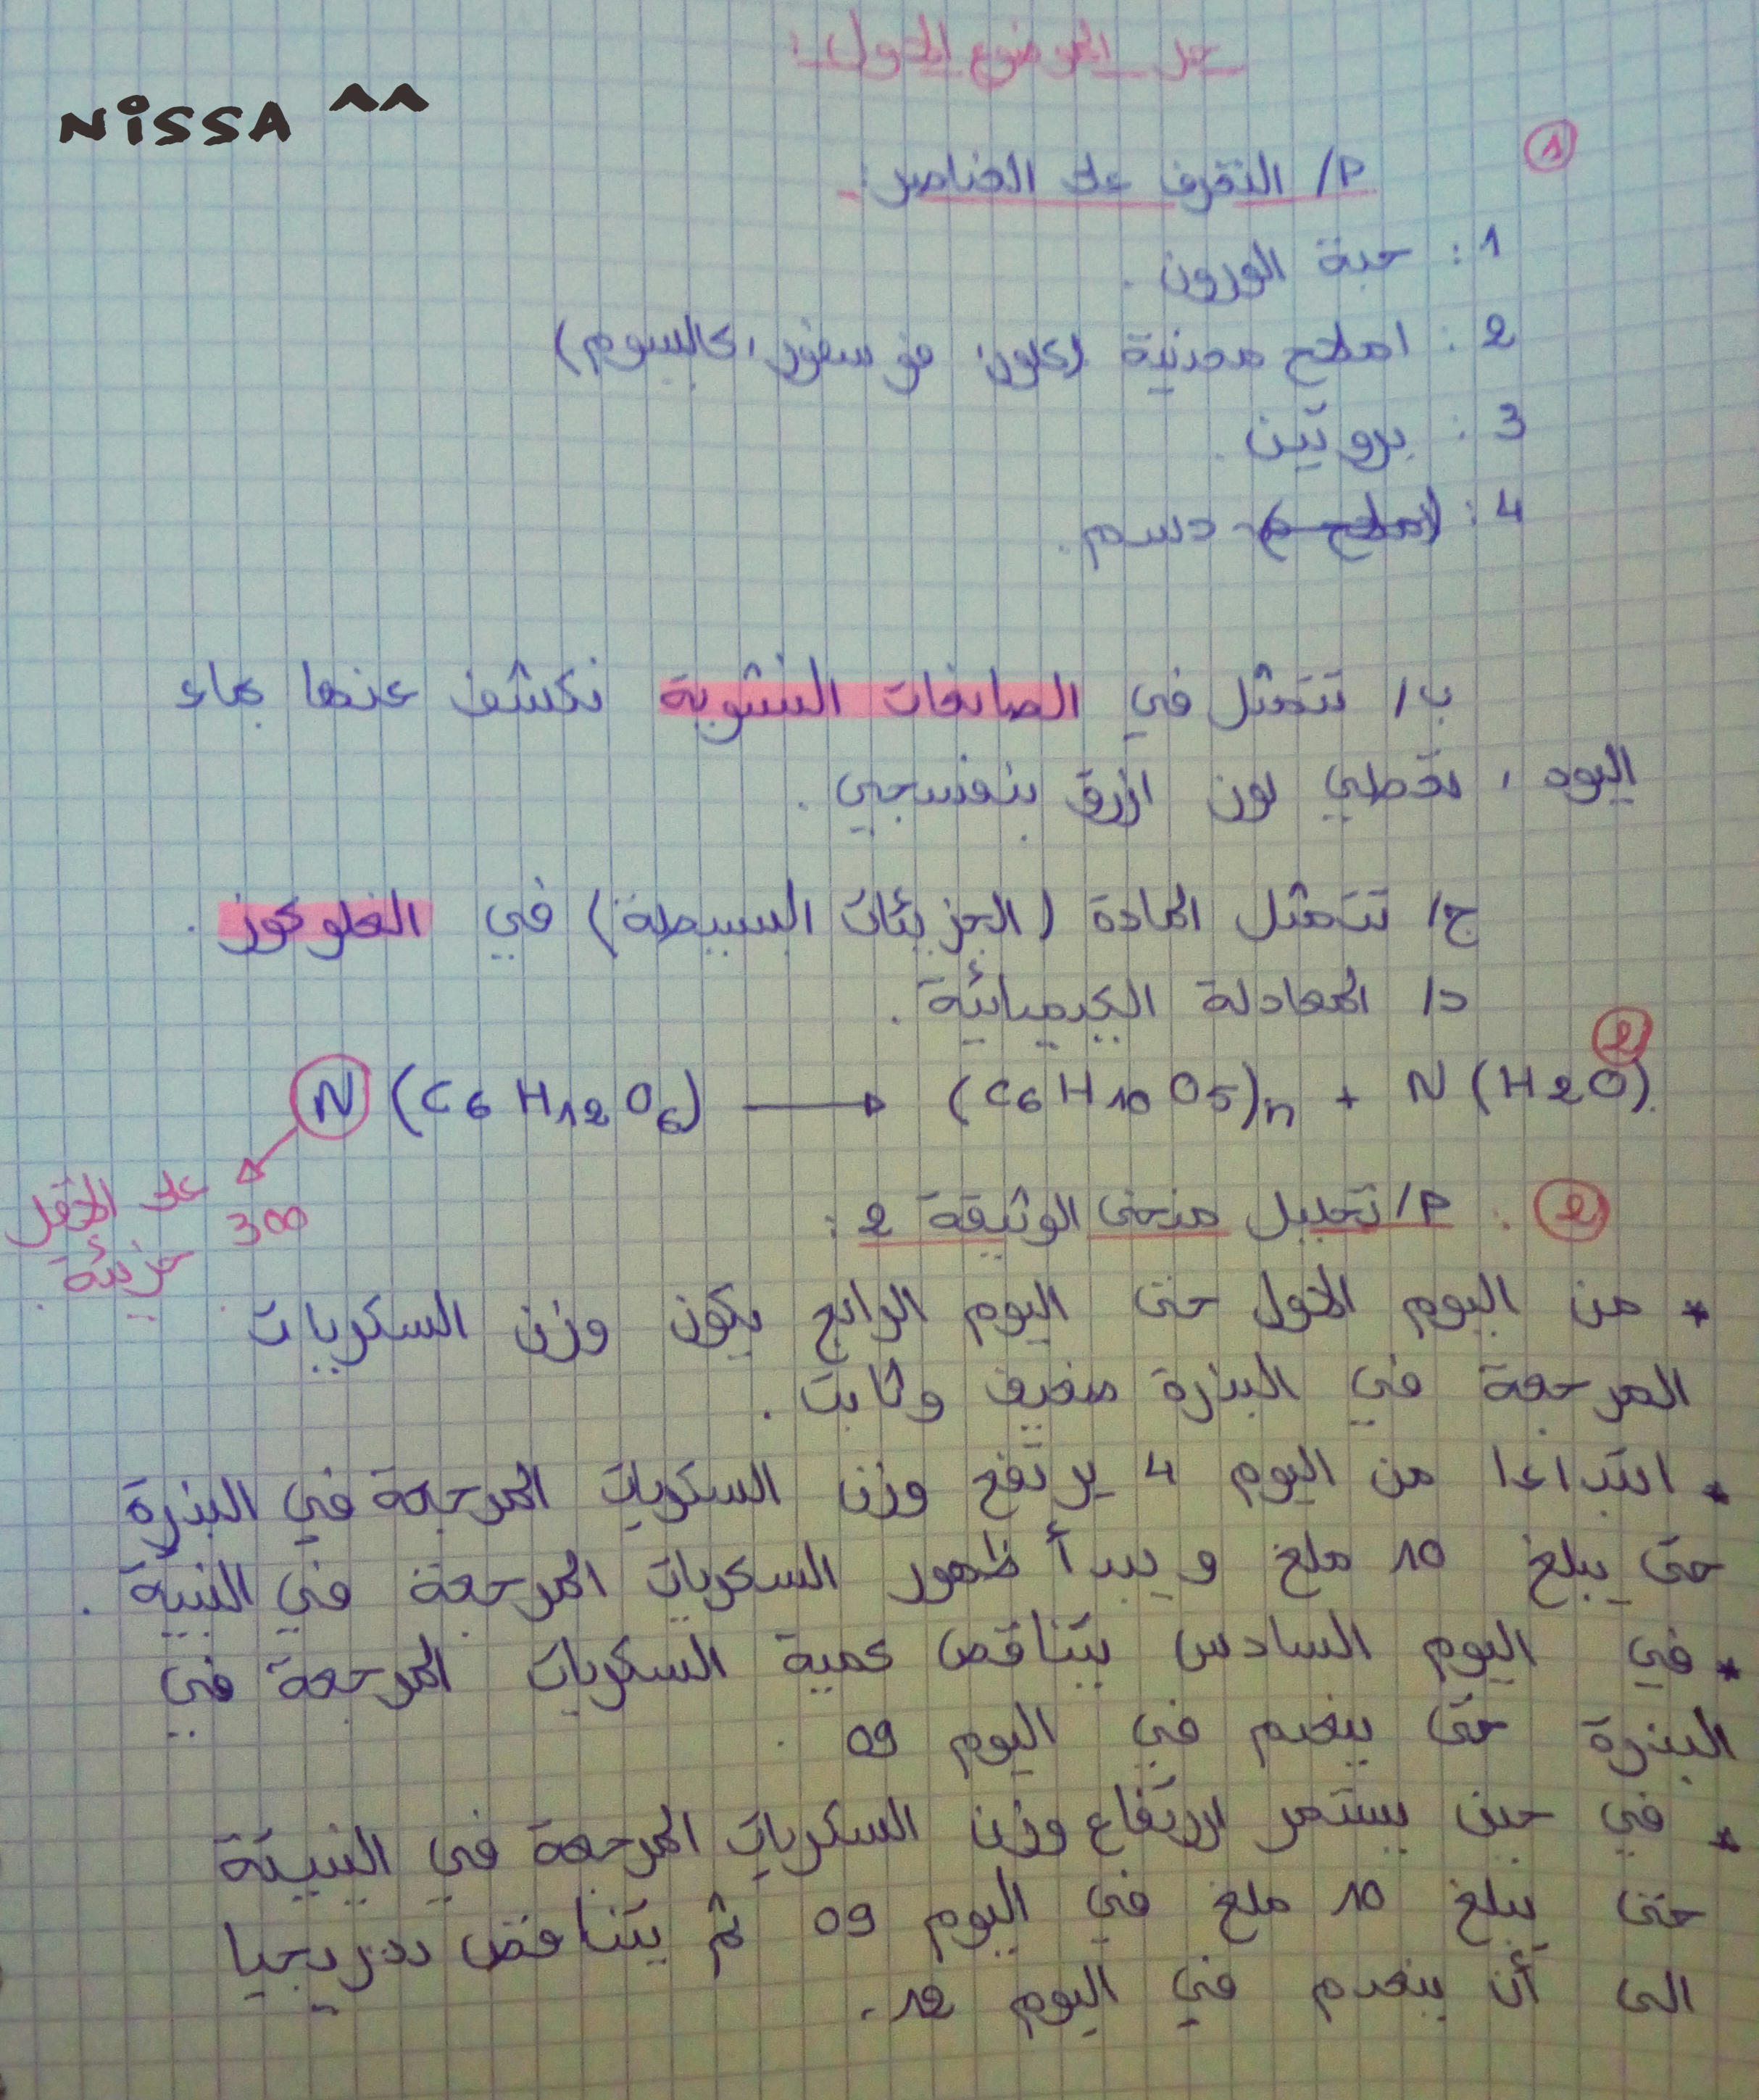 حل الموضوع الأول:
NiSSA ^^
①
أ/ التعرف على العناصر:
1: حبة الورون.
2: املاح معدنية (كلور، فوسفور، كالسيوم)
3: بروتين.
4: (املاح م) دسم.
ب/ تتمثل في الصانعات النشوية نكشف عنها بماء
اليود، تعطي لون ازرق بنفسجي.
ج/ تتمثل المادة (الجزيئات البسيطة) في الغلوكوز.
د/ المعادلة الكيميائية.
N (C6 H12 O6) → (C6 H10 O5)n + N (H2O).
②
على الأقل
300
جزيئة.
② أ/ تحليل منحنى الوثيقة 2:
* من اليوم الأول حتى اليوم الرابع يكون وزن السكريات
المرجعة في البذرة ضعيف وثابت.
* ابتداءا من اليوم 4 يرتفع وزن السكريات المرجعة في البذرة
حتى يبلغ 10 ملغ و يبدأ ظهور السكريات المرجعة في النبية.
* في اليوم السادس يتناقص كمية السكريات المرجعة في
البذرة حتى ينعدم في اليوم 09.
* في حين يستمر ارتفاع وزن السكريات المرجعة في النبيتة
حتى يبلغ 10 ملغ في اليوم 09 ثم يتناقص تدريجيا
الى أن ينعدم في اليوم 12.